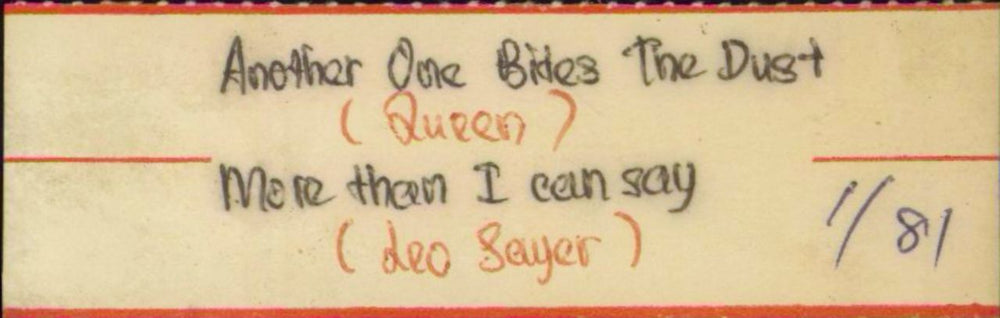 Another One Bites The Dust
(Queen)
More than I can say
(Leo Sayer)
1/81